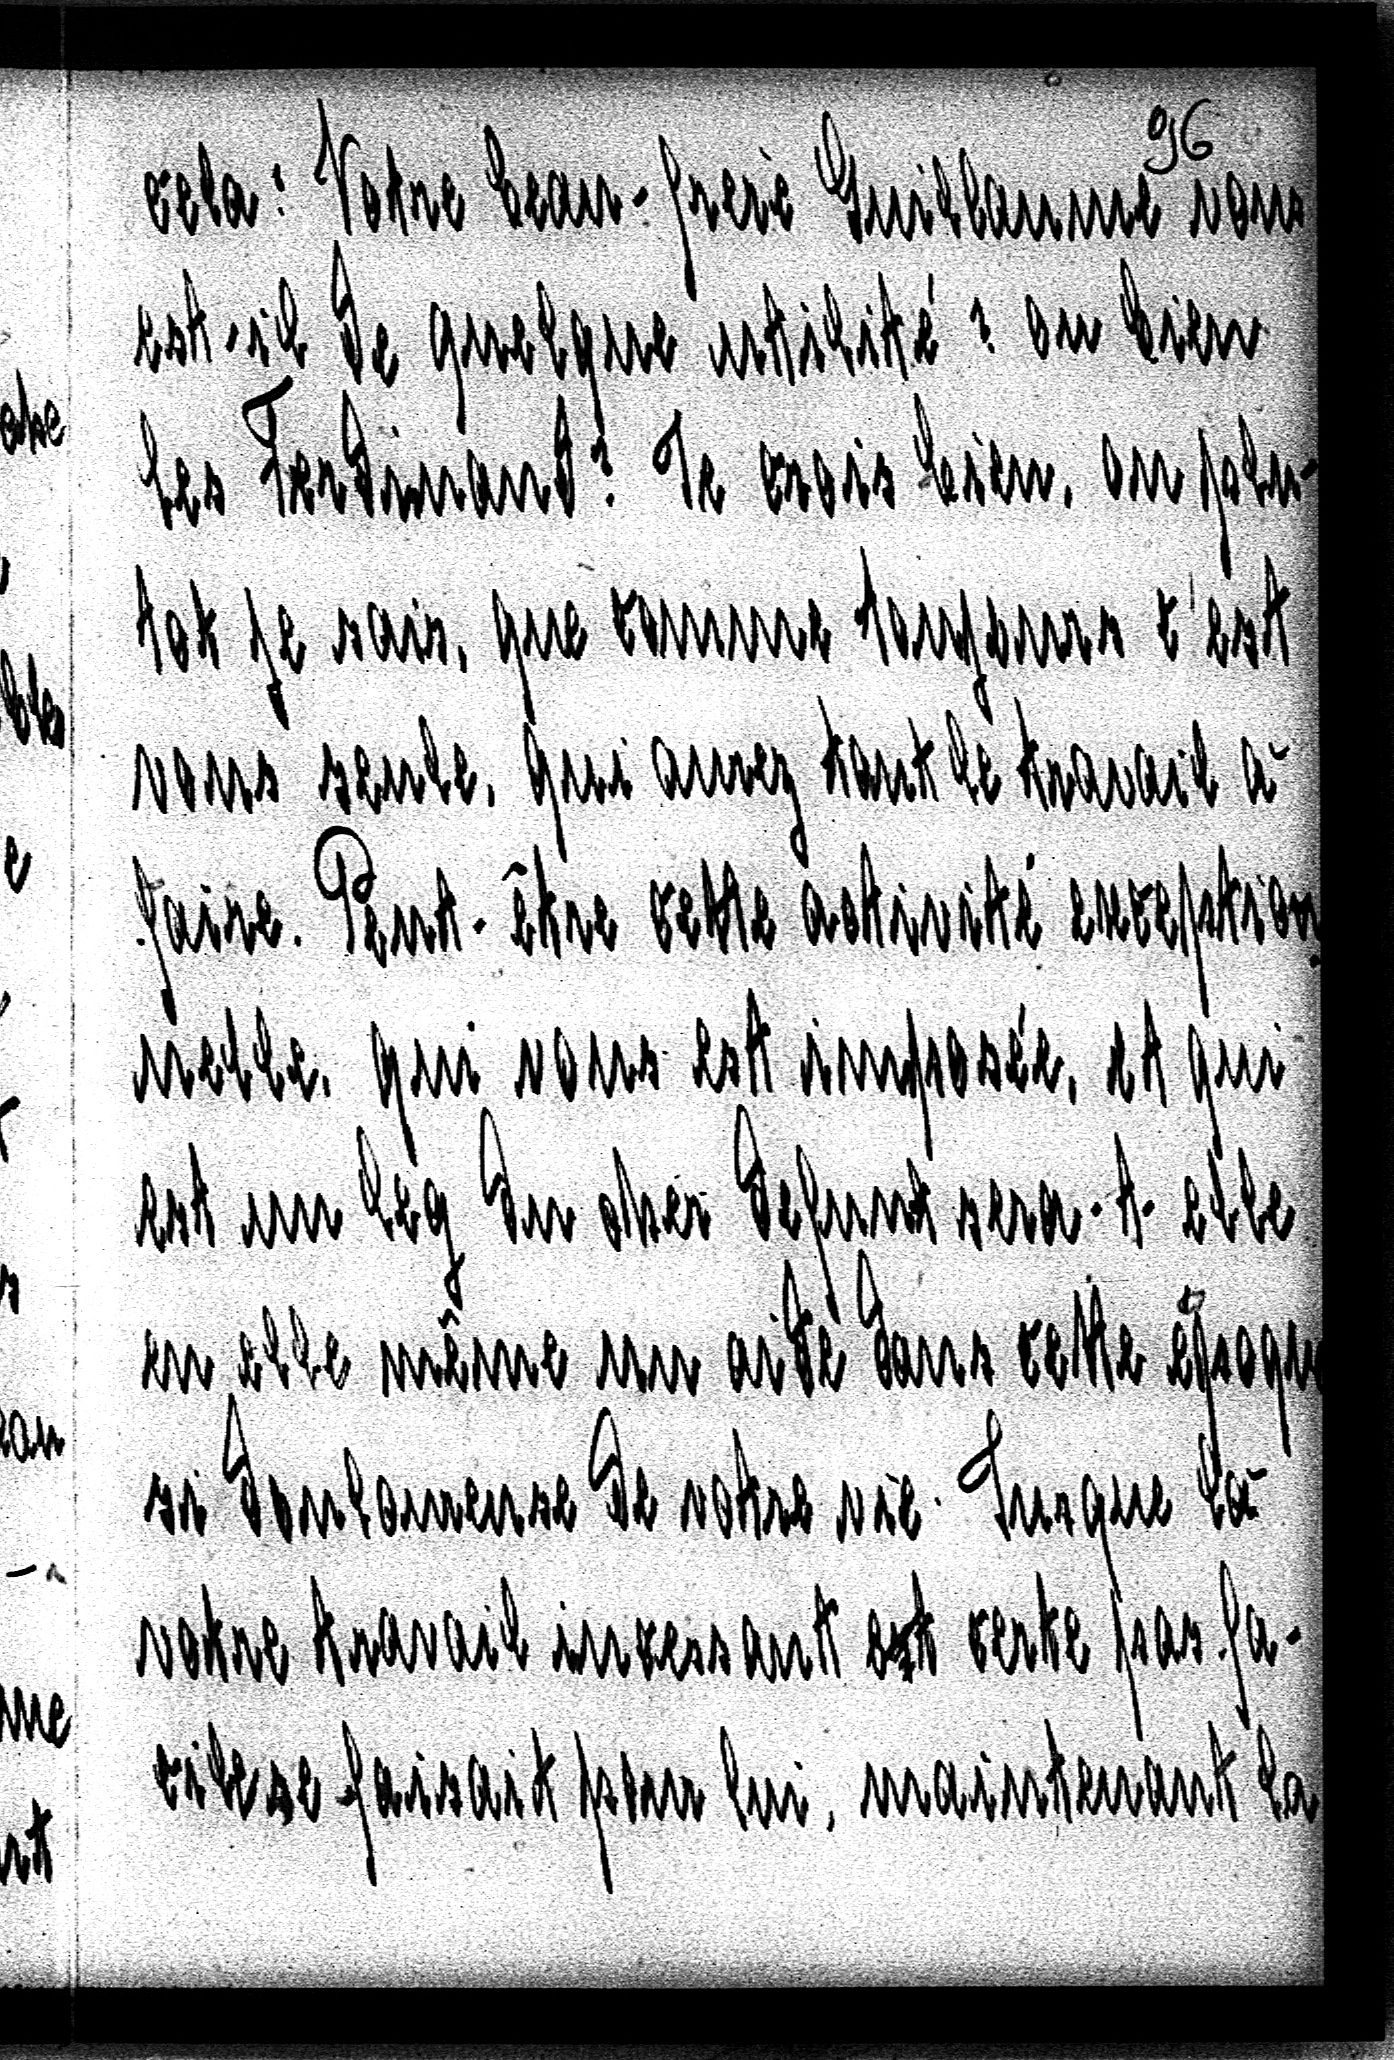 96
cela? Votre beau-frere Guillaume vous
est-il de quelque utilité? ou bien
les Ferdinand? Je crois bien, ou plu-
tot je sais, que comme toujours c'est
vous seule, qui aurez tout le travail à
faire. Peut-être cette activité exception
nelle, qui vous est imposée, et qui
est un leg du cher defunt sera-t-elle
en elle même un aide dans cette époque
si douloureuse de votre vie. Jusque là
votre travail incessant et certe pas fa-
cile se faisait pour lui, maintenant la